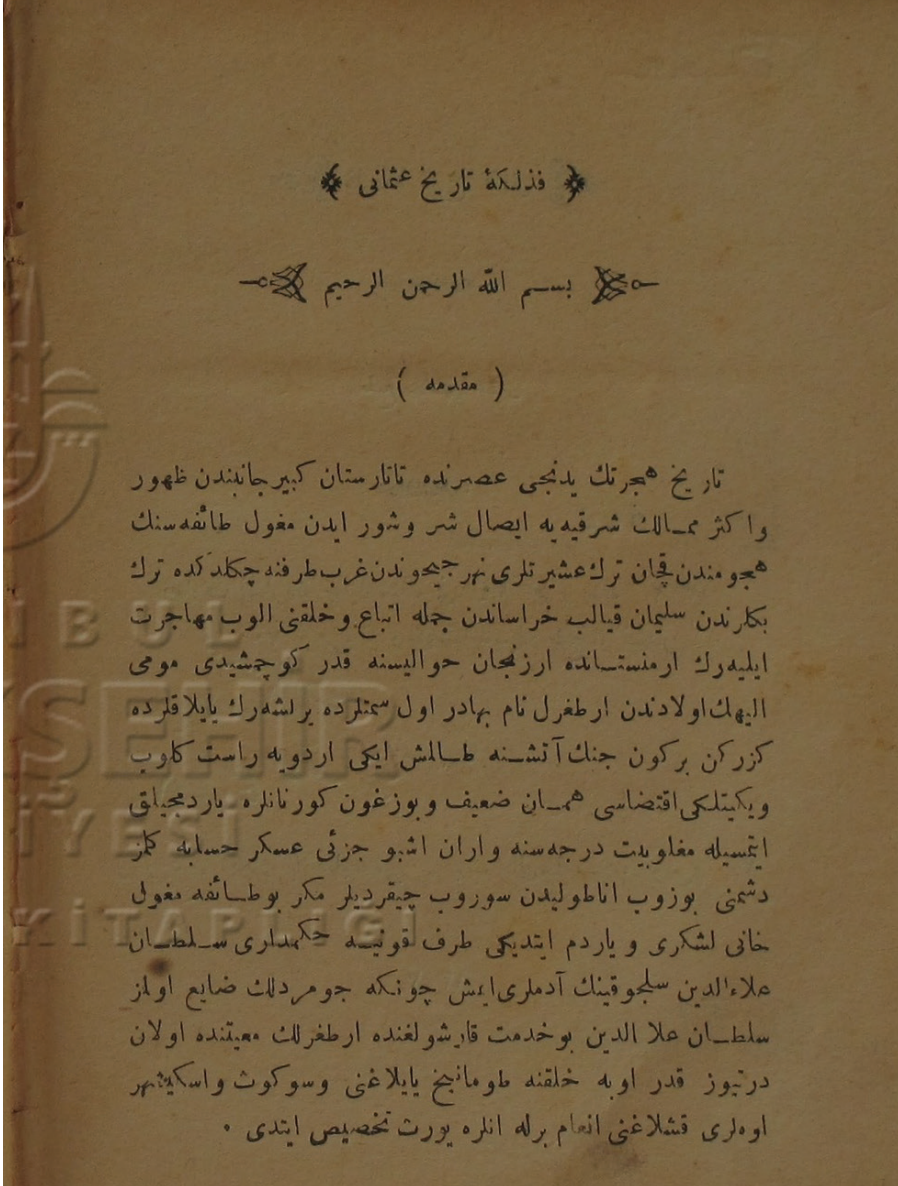 ﴿ فذلكهٔ تاريخ عثمانى ﴾
بسم الله الرحمن الرحيم
( مقدمه )
تاريخ هجرتك يدنجى عصرنده تاتارستان كبير جانبندن ظهور
واكثر ممالك شرقيه‌يه ايصال شر وشور ايدن مغول طائفه‌سنك
هجومندن قچان ترك عشيرتلرى نهر جيحوندن غرب طرفنه چكلدكده ترك
بكلرندن سليمان قيالب خراساندن جمله اتباع وخلقنى الوب مهاجرت
ايليه‌رك ارمنستانده ارزنجان حواليسنه قدر كوچمشيدى مومى
اليهك اولادندن ارطغرل نام بهادر اول سمتلرده يرلشه‌رك يايلاقلرده
كزركن بركون جنك آتشنه طالمش ايكى اردويه راست كلوب
ويكيتلكى اقتضاسى همان ضعيف وبوزغون كورنانلره ياردمجيلق
ايتمسيله مغلوبيت درجه‌سنه واران اشبو جزئى عسكر حسابه كلمز
دشمنى بوزوب اناطوليدن سوروب چيقرديلر مكر بوطائفه مغول
خانى لشكرى وياردم ايتديكى طرف قونيه حكمدارى سلطان
علاءالدين سلجوقينك آدملرى‌ايمش چونكه جومردلك ضايع اولمز
سلطان علا الدين بوخدمت قارشولغنده ارطغرلك معيتنده اولان
درتيوز قدر اوبه خلقنه طومانيج يايلاغنى وسوكوت واسكيشهر
اوه‌لرى قشلاغنى انعام برله انلره يورت تخصيص ايتدى .
ISBUL
KŞEHİR
İYESİ
KİTAPLIĞI